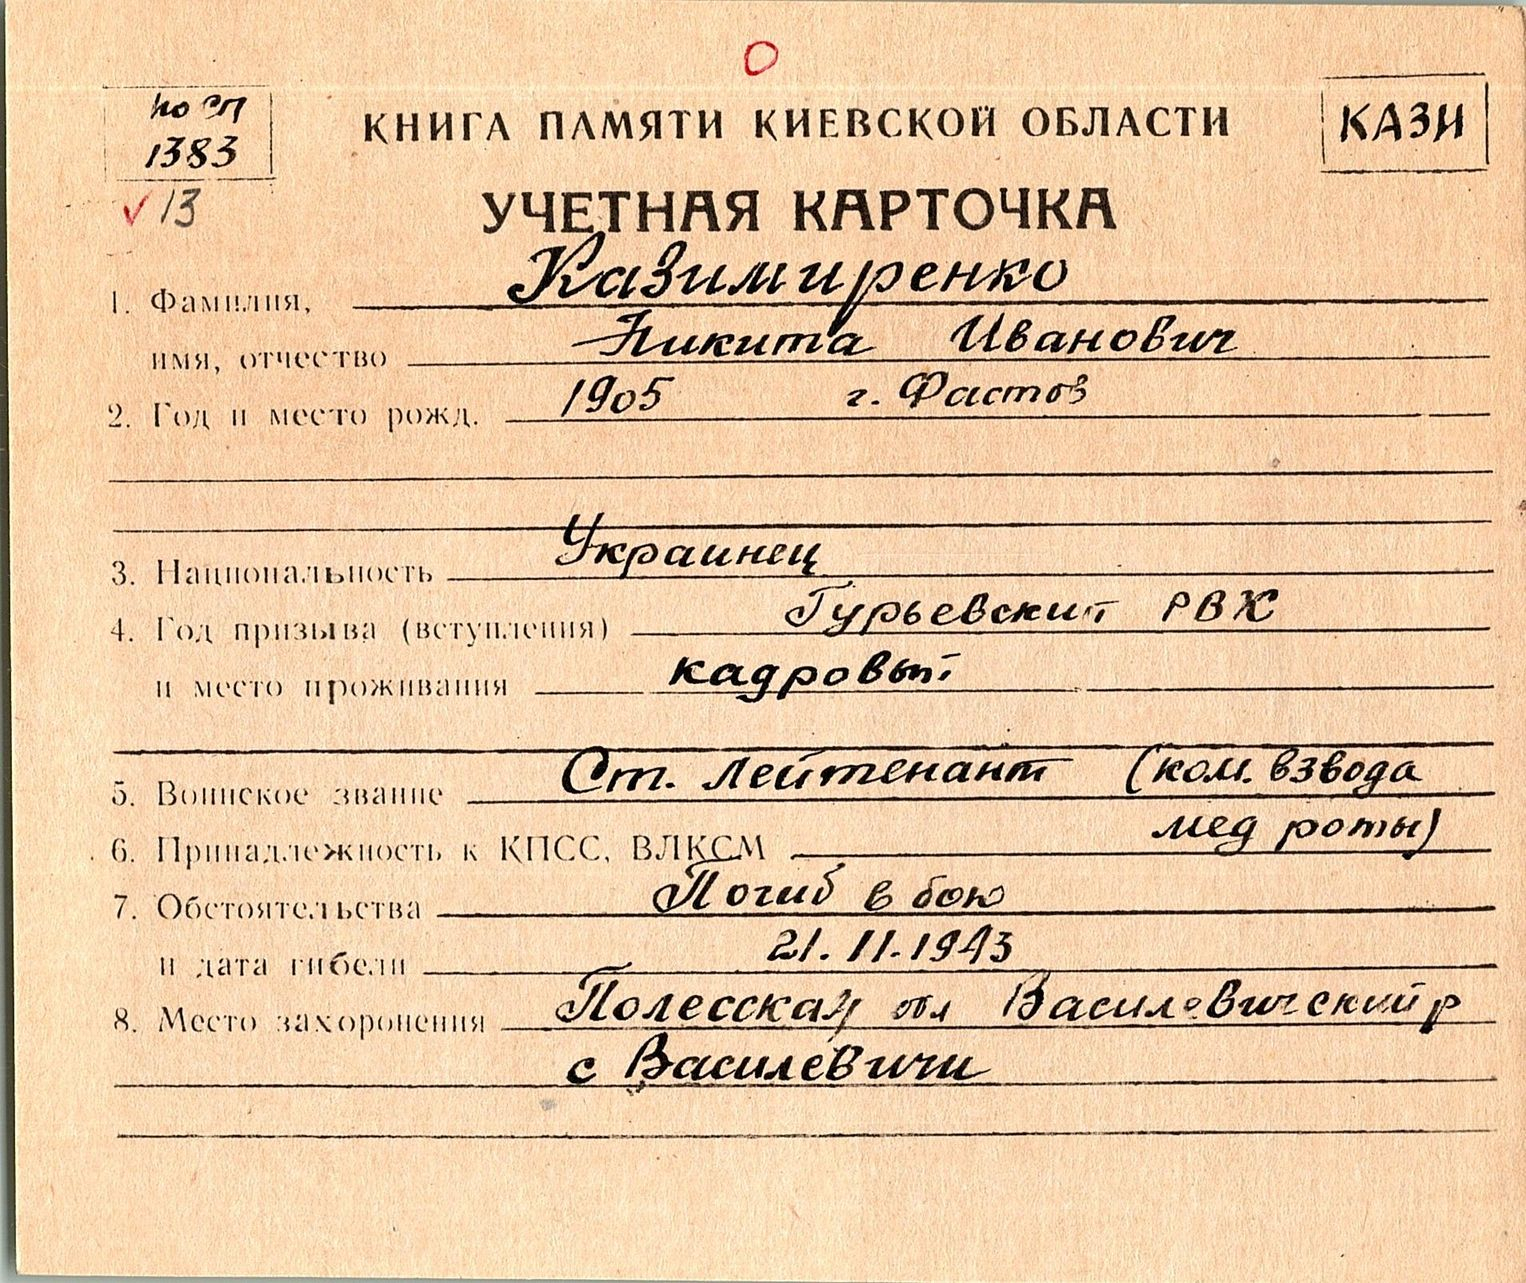 по сп
1383
13
КНИГА ПАМЯТИ КИЕВСКОЙ ОБЛАСТИ
КАЗИ
УЧЕТНАЯ КАРТОЧКА
1. Фамилия, Казимиренко
имя, отчество Никита Иванович
2. Год и место рожд. 1905 г. Фастов
3. Национальность Украинец
4. Год призыва (вступления) Гурьевский РВК
и место проживания кадровый
5. Воинское звание Ст. лейтенант (ком. взвода
6. Принадлежность к КПСС, ВЛКСМ мед роты)
7. Обстоятельства Погиб в бою
и дата гибели 21.11.1943
8. Место захоронения Полесская обл Василевичский р
с Василевичи